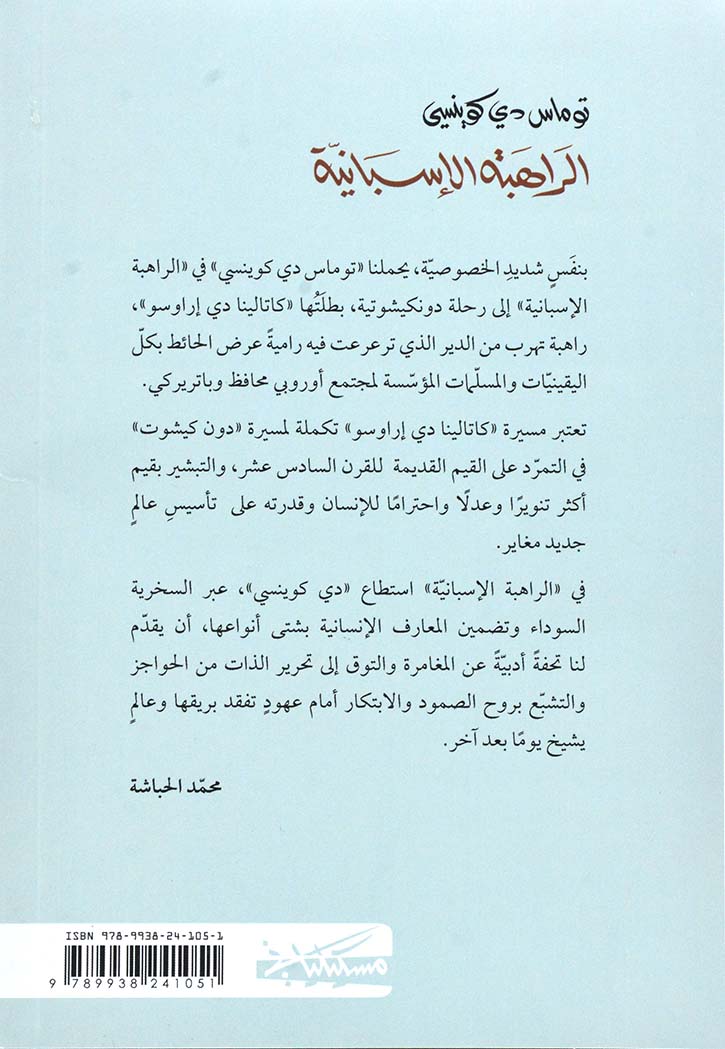 توماس دي كوينسي
الرَاهبَة الإسبَانيّة
بنفَسٍ شديدِ الخصوصيّة، يحملنا «توماس دي كوينسي» في «الراهبة
الإسبانية» إلى رحلة دونكيشوتية، بطلَتُها «كاتالينا دي إراوسو»،
راهبة تهرب من الدير الذي ترعرعت فيه راميةً عرض الحائط بكلّ
اليقينيّات والمسلّمات المؤسّسة لمجتمع أوروبي محافظ وباتريركي.
تعتبر مسيرة «كاتالينا دي إراوسو» تكملة لمسيرة «دون كيشوت»
في التمرّد على القيم القديمة للقرن السادس عشر، والتبشير بقيم
أكثر تنويرًا وعدلًا واحترامًا للإنسان وقدرته على تأسيسِ عالمٍ
جديد مغاير.
في «الراهبة الإسبانيّة» استطاع «دي كوينسي»، عبر السخرية
السوداء وتضمين المعارف الإنسانية بشتى أنواعها، أن يقدّم
لنا تحفةً أدبيّةً عن المغامرة والتوق إلى تحرير الذات من الحواجز
والتشبّع بروح الصمود والابتكار أمام عهودٍ تفقد بريقها وعالمٍ
يشيخ يومًا بعد آخر.
محمّد الحباشة
ISBN 978-9938-24-105-1
9 789938 241051
مسكيلياني